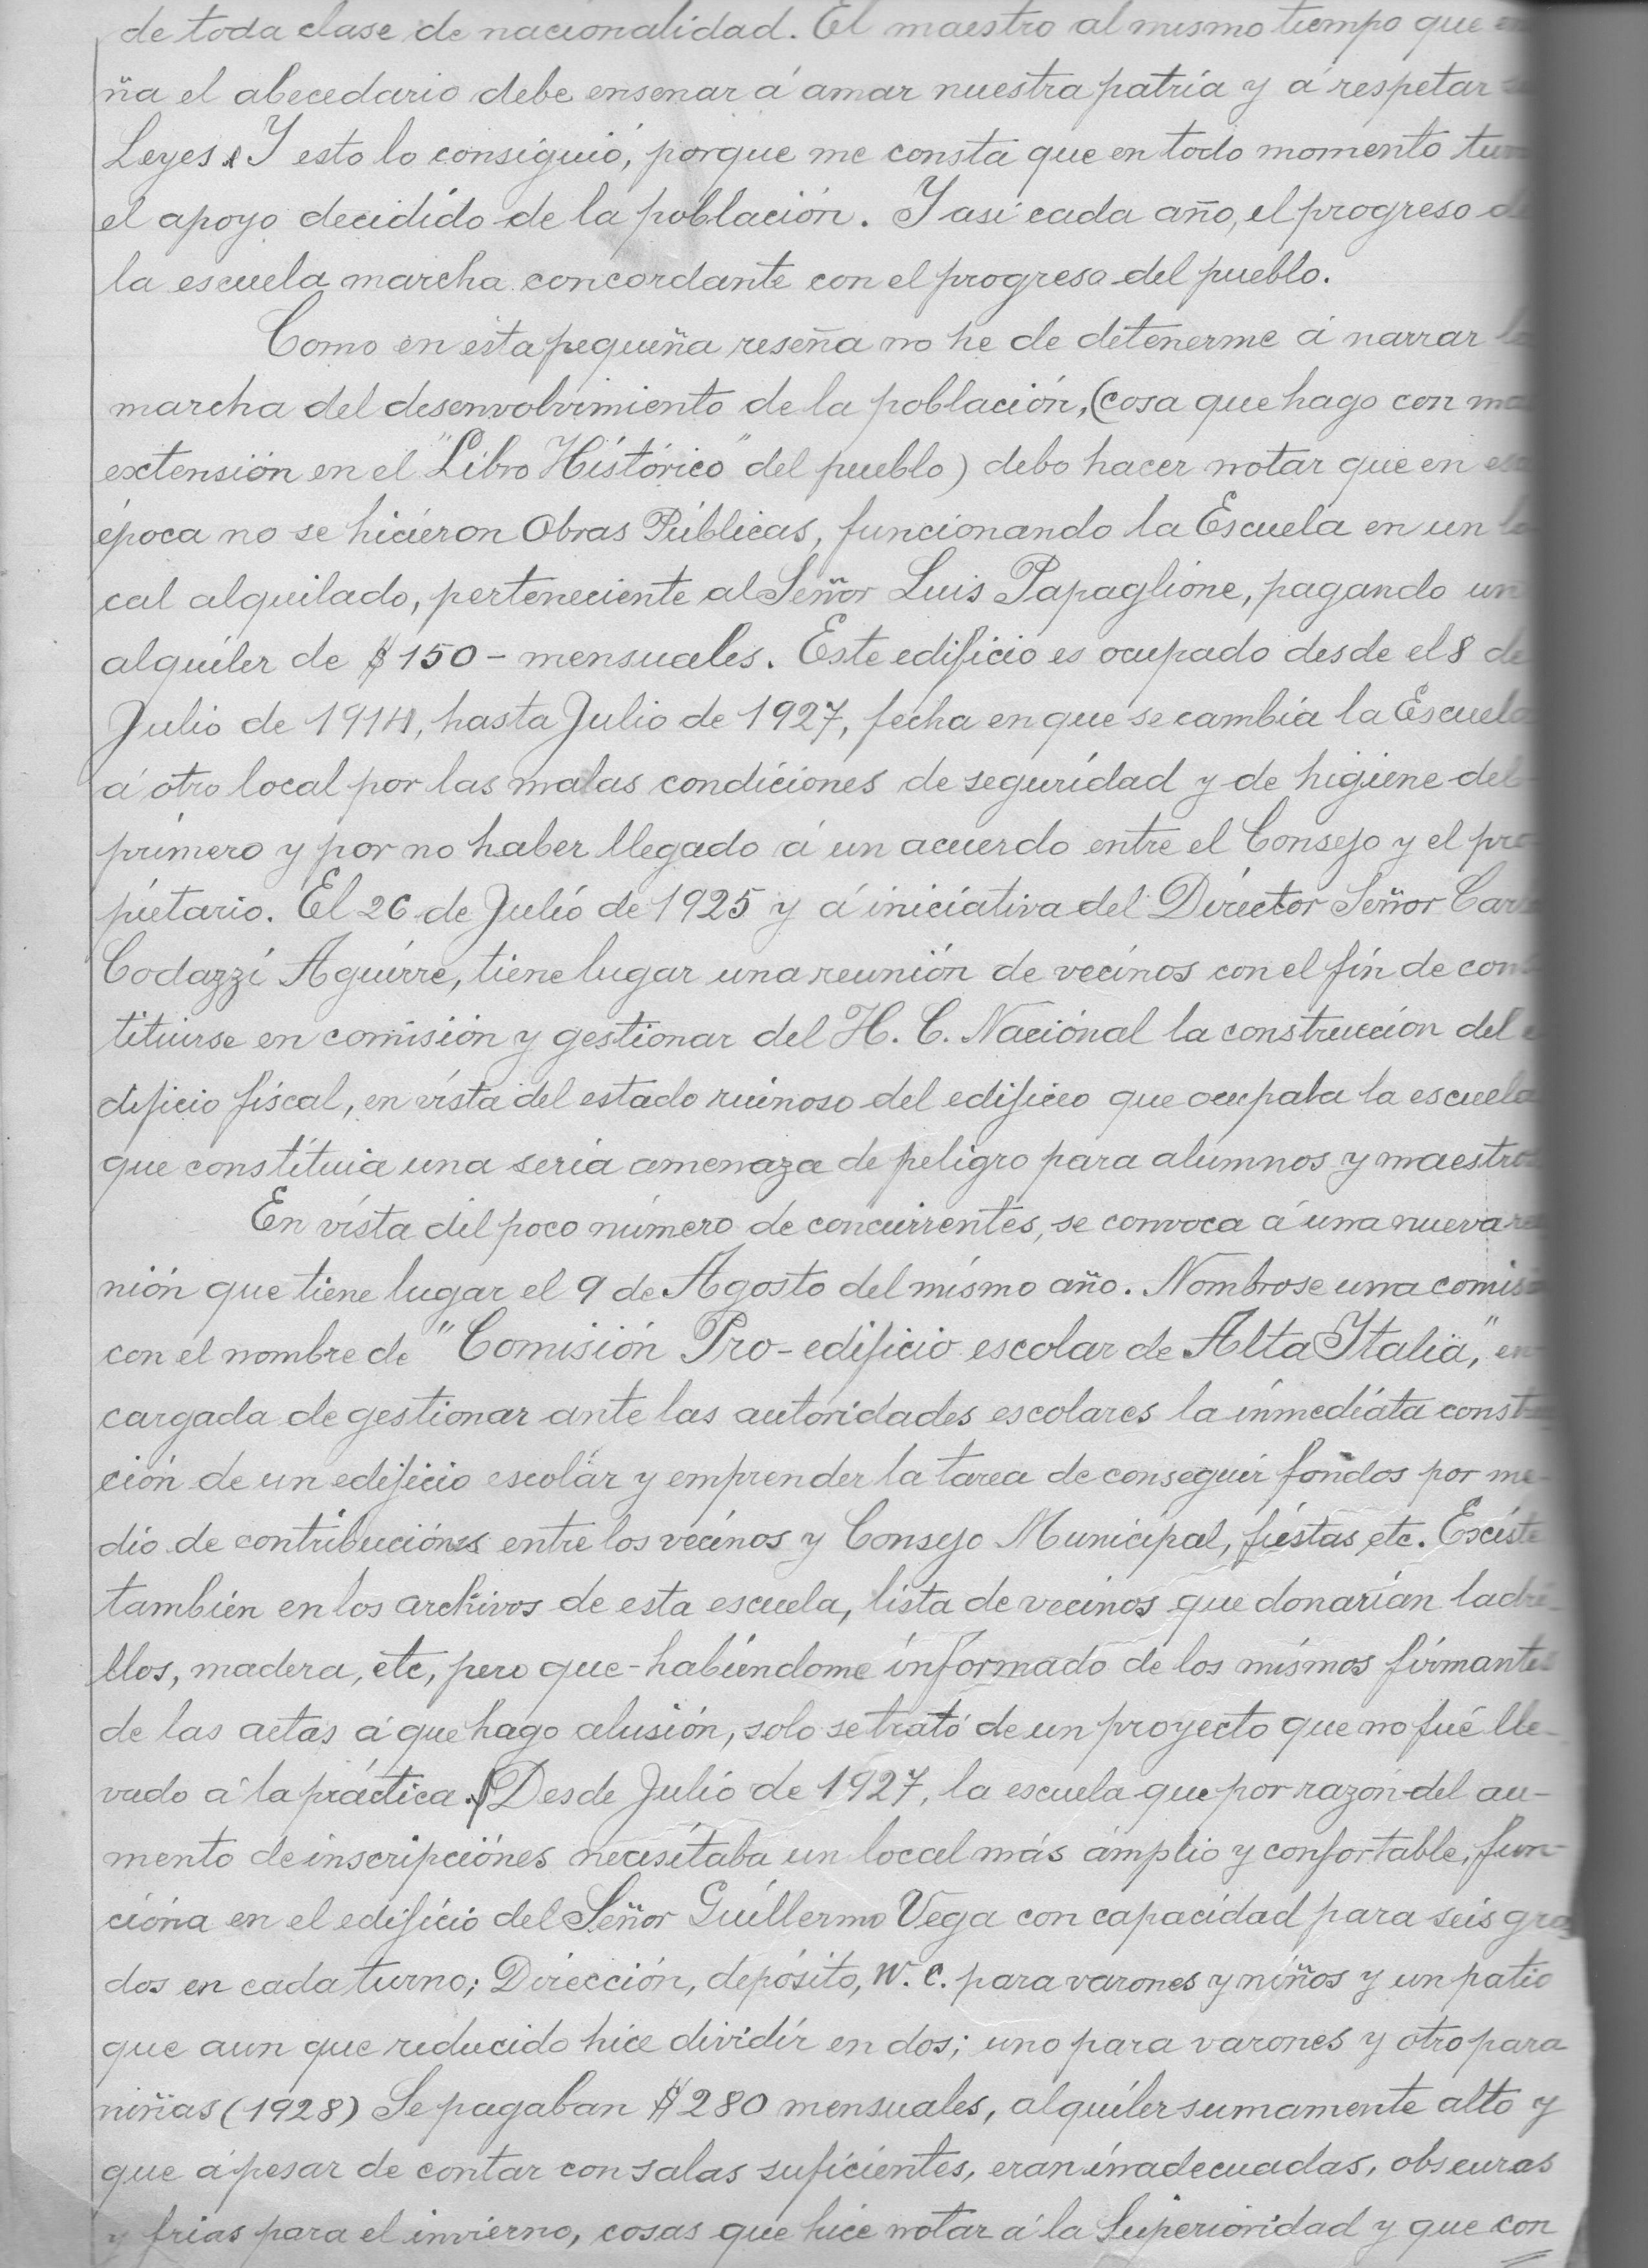 de toda clase de nacionalidad. El maestro al mismo tiempo que en
ña el abecedario debe ensenar á amar nuestra patria y á respetar
Leyes. Y esto lo consiguió, porque me consta que en todo momento tuv
el apoyo decidido de la población. Y asi cada año, el progreso de
la escuela marcha concordante con el progreso del pueblo.
Como en esta pequeña reseña no he de detenerme á narrar la
marcha del desenvolvimiento de la población, (cosa que hago con ma
extensión en el "Libro Histórico" del pueblo) debo hacer notar que en esa
época no se hicieron Obras Públicas, funcionando la Escuela en un lo
cal alquilado, perteneciente al Señor Luis Papaglione, pagando un
alquiler de $ 150 - mensuales. Este edificio es ocupado desde el 8 de
Julio de 1914, hasta Julio de 1927, fecha en que se cambia la Escuela
á otro local por las malas condiciones de seguridad y de higiene del
primero y por no haber llegado á un acuerdo entre el Consejo y el pro
pietario. El 26 de Julio de 1925 y á iniciativa del Director Señor Carl
Codazzi Aguirre, tiene lugar una reunión de vecinos con el fin de cons
tituirse en comisión y gestionar del H. C. Nacional la construcción del e
dificio fiscal, en vista del estado ruinoso del edificio que ocupaba la escuela
que constituia una seria amenaza de peligro para alumnos y maestros
En vista del poco número de concurrentes, se convoca á una nueva re
nión que tiene lugar el 9 de Agosto del mismo año. Nombrose una comisi
con el nombre de "Comisión Pro-edificio escolar de Alta Italia", en
cargada de gestionar ante las autoridades escolares la inmediata constr
ción de un edificio escolar y emprender la tarea de conseguir fondos por me-
dio de contribuciónes entre los vecinos y Consejo Municipal, fiestas, etc. Exciste
también en los archivos de esta escuela, lista de vecinos que donarían ladri-
llos, madera, etc, pero que - habiéndome informado de los mismos firmantes
de las actas á que hago alusión, solo se trató de un proyecto que no fué lle-
vado á la práctica. Desde Julio de 1927, la escuela que por razón del au-
mento de inscripciónes necesitaba un local más ámplio y confortable, fun-
ciona en el edificio del Señor Guillermo Vega con capacidad para seis gra
dos en cada turno; Dirección, depósito, W. C. para varones y niños y un patio
que aun que reducido hice dividir en dos; uno para varones y otro para
niñas (1928) Se pagaban $ 280 mensuales, alquiler sumamente alto y
que á pesar de contar con salas suficientes, eran inadecuadas, obscuras
y frias para el invierno, cosas que hice notar á la Superioridad y que con